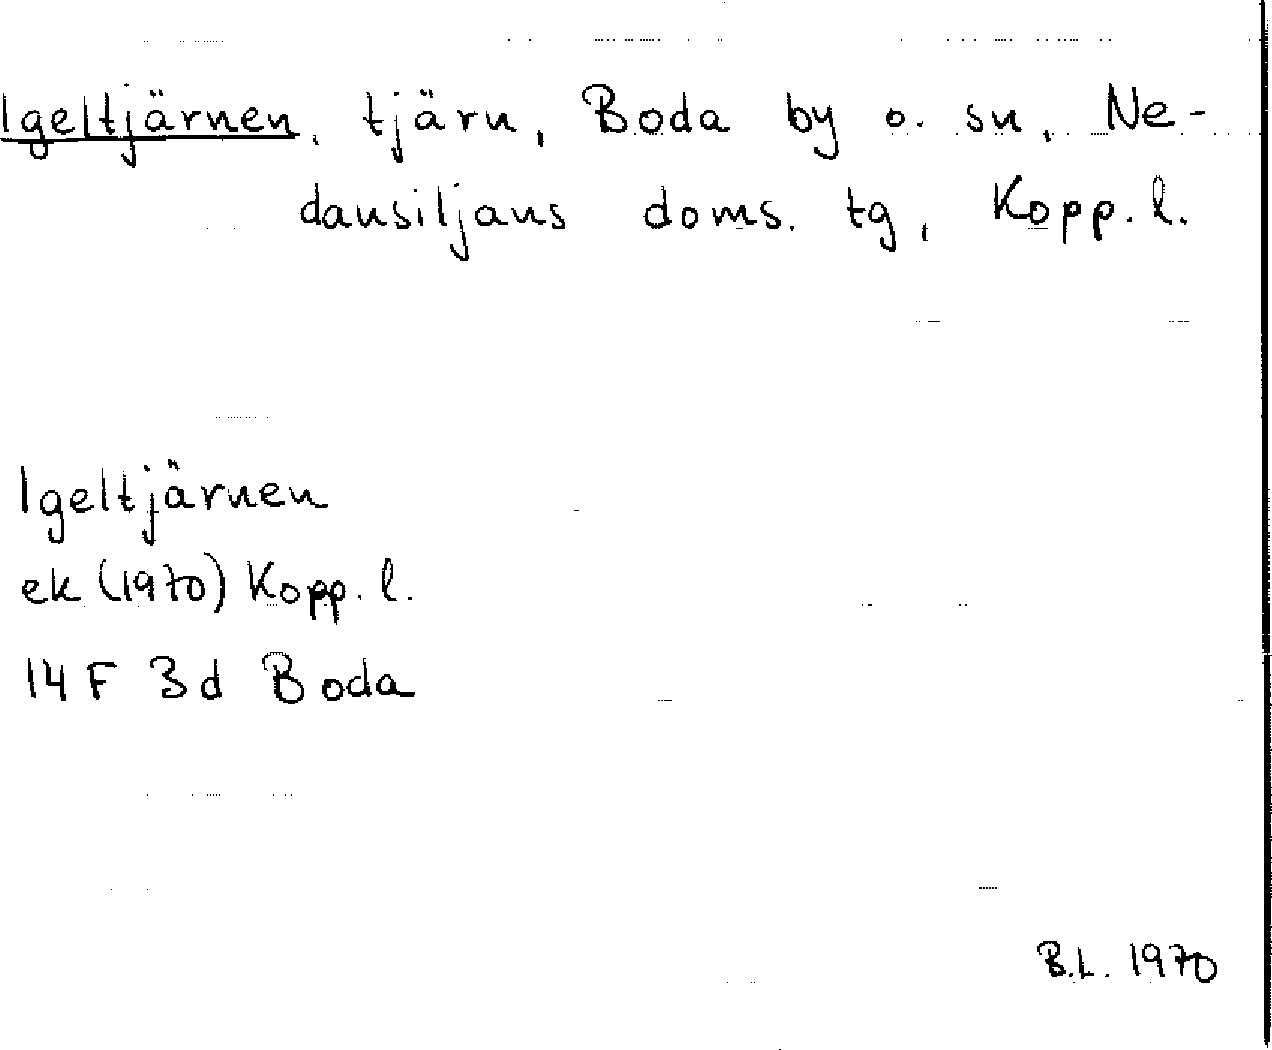 Igeltjärnen, tjärn, Boda by o. sn, Ne-
dansiljans doms. tg, Kopp. l.
Igeltjärnen
ek (1970) Kopp. l.
14 F 3d Boda
B.L. 1970